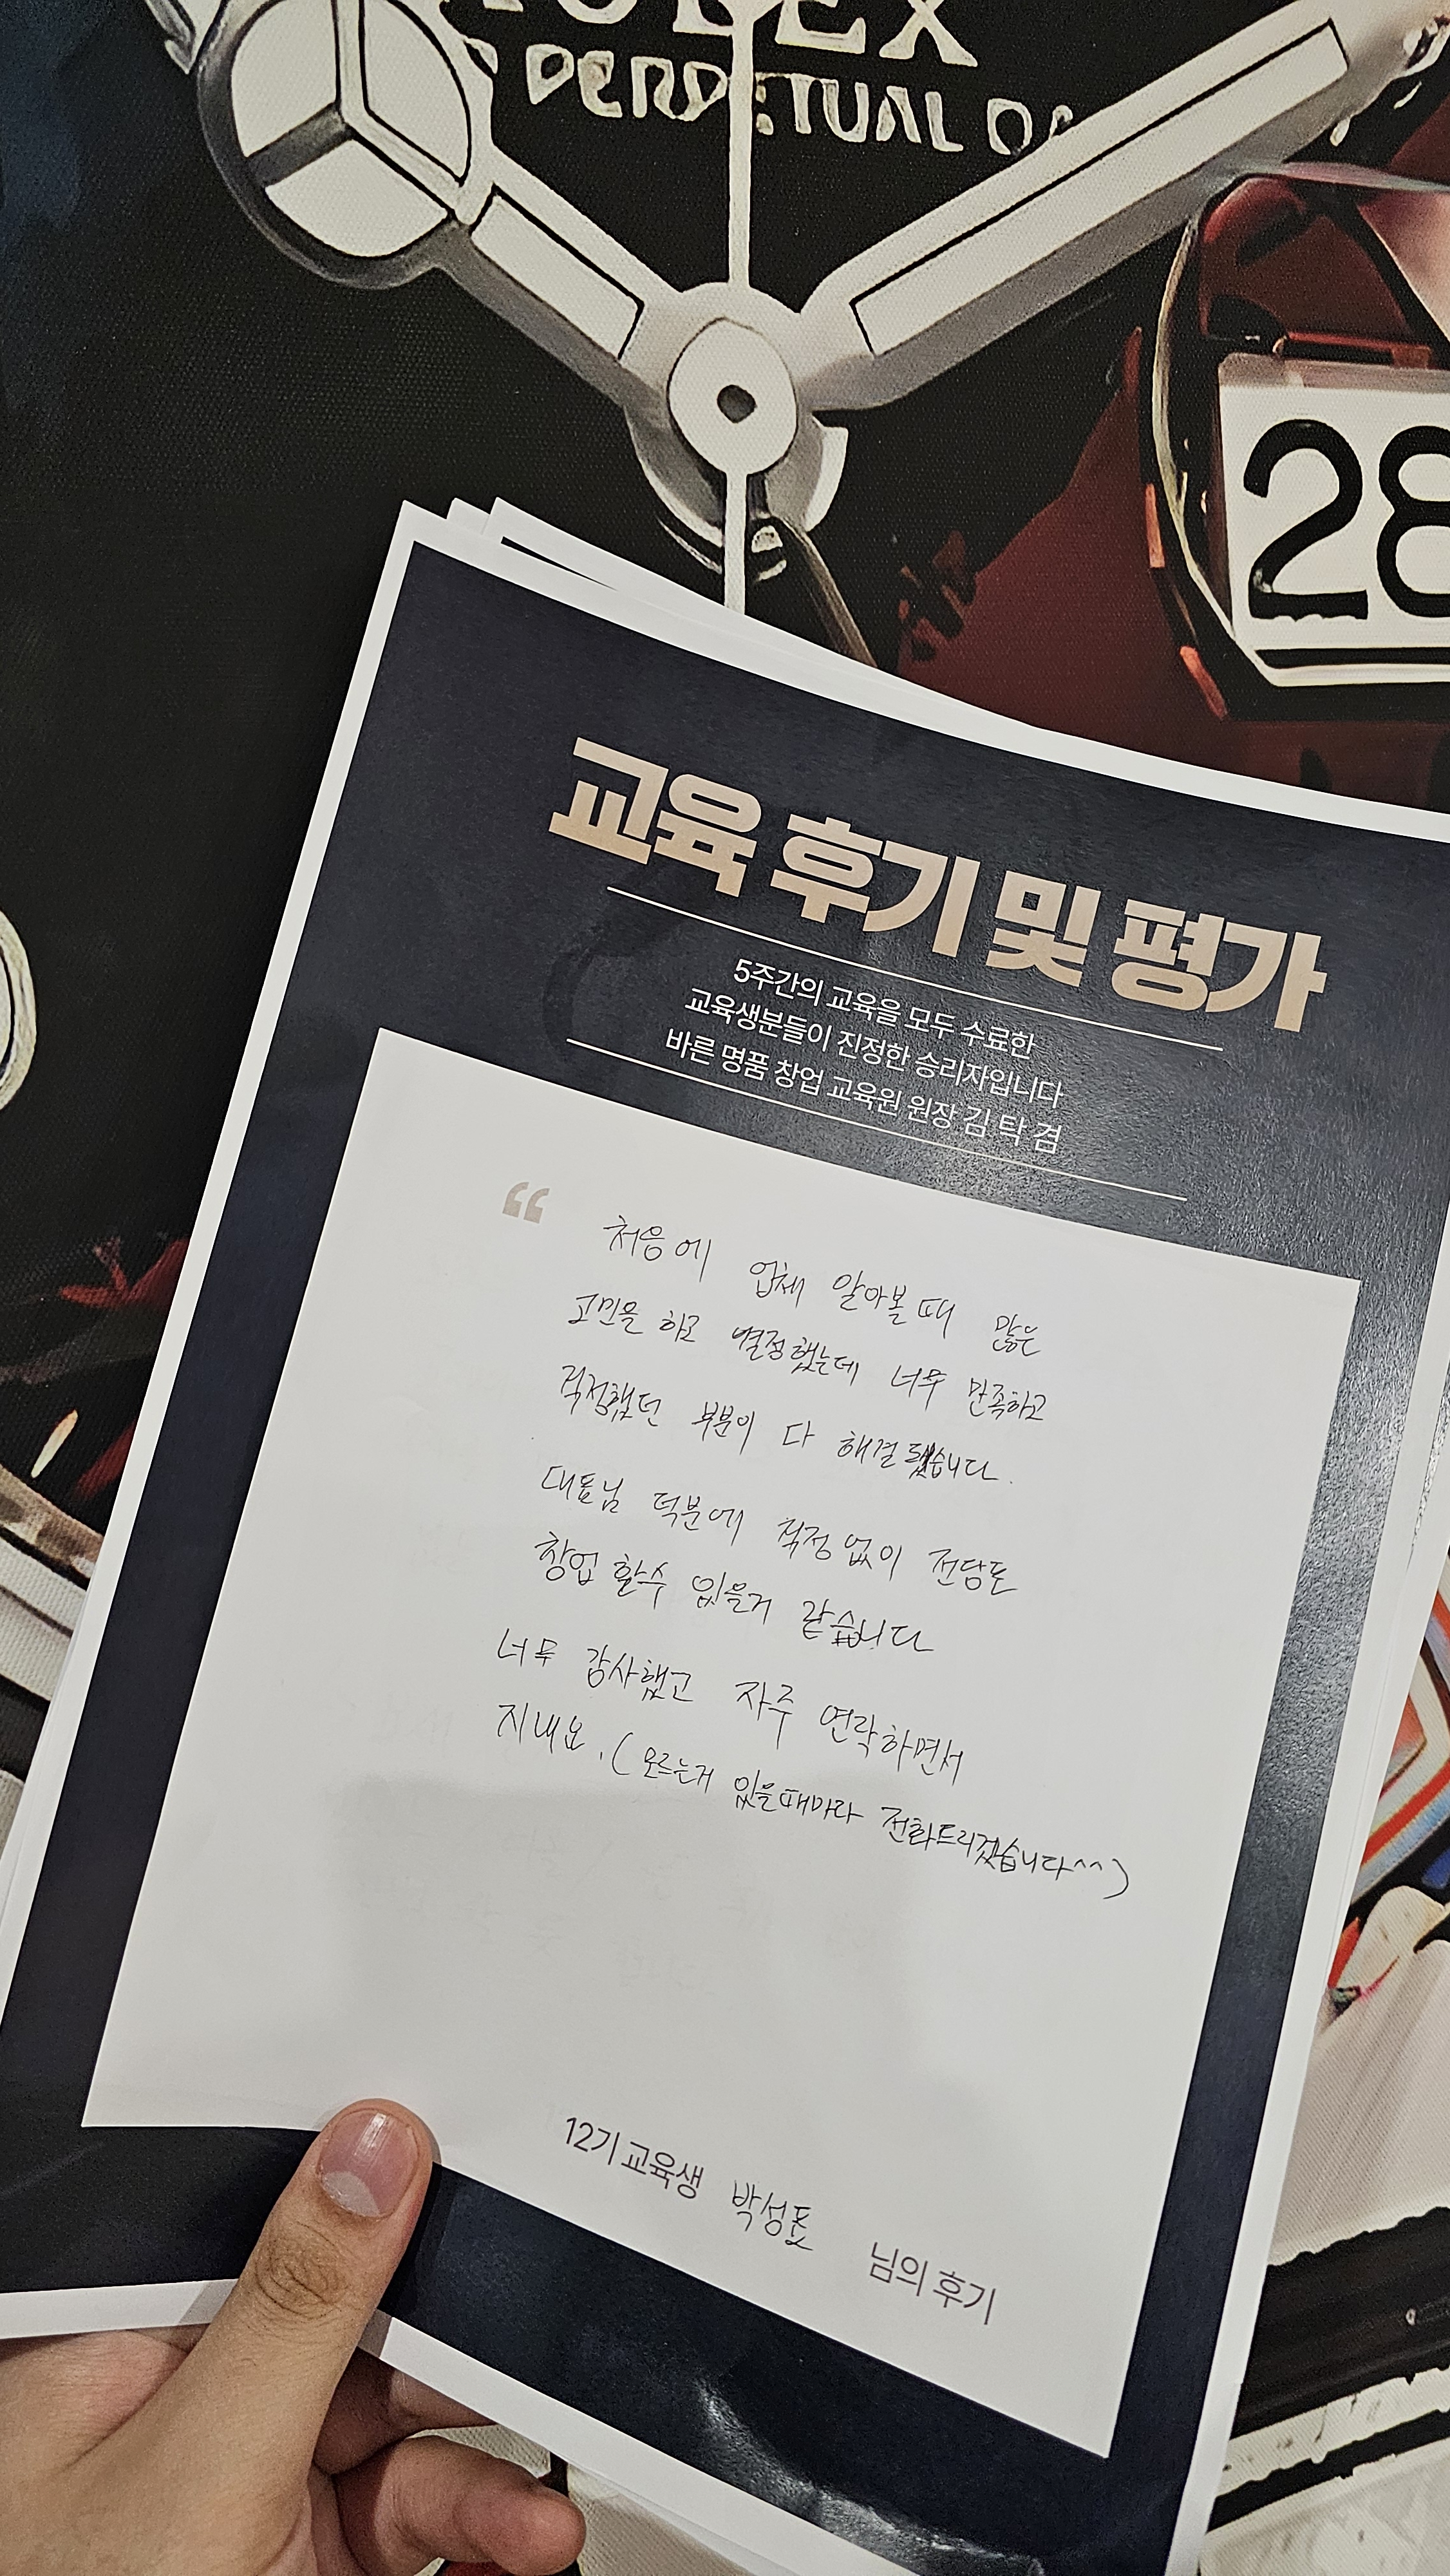 ROLEX
PERPETUAL DA
28
교육 후기 및 평가
5주간의 교육을 모두 수료한
교육생분들이 진정한 승리자입니다
바른 명품 창업 교육원 원장 김 탁 겸
“ 처음에 업체 알아볼때 많은
고민을 하고 결정했는데 너무 만족하고
걱정했던 부분이 다 해결됐습니다.
대표님 덕분에 걱정없이 전당포
창업 할수 있을거 같습니다
너무 감사했고 자주 연락하면서
지내요. (모르는거 있을때마라 전화드리겠습니다^^)
12기 교육생 박성표 님의 후기